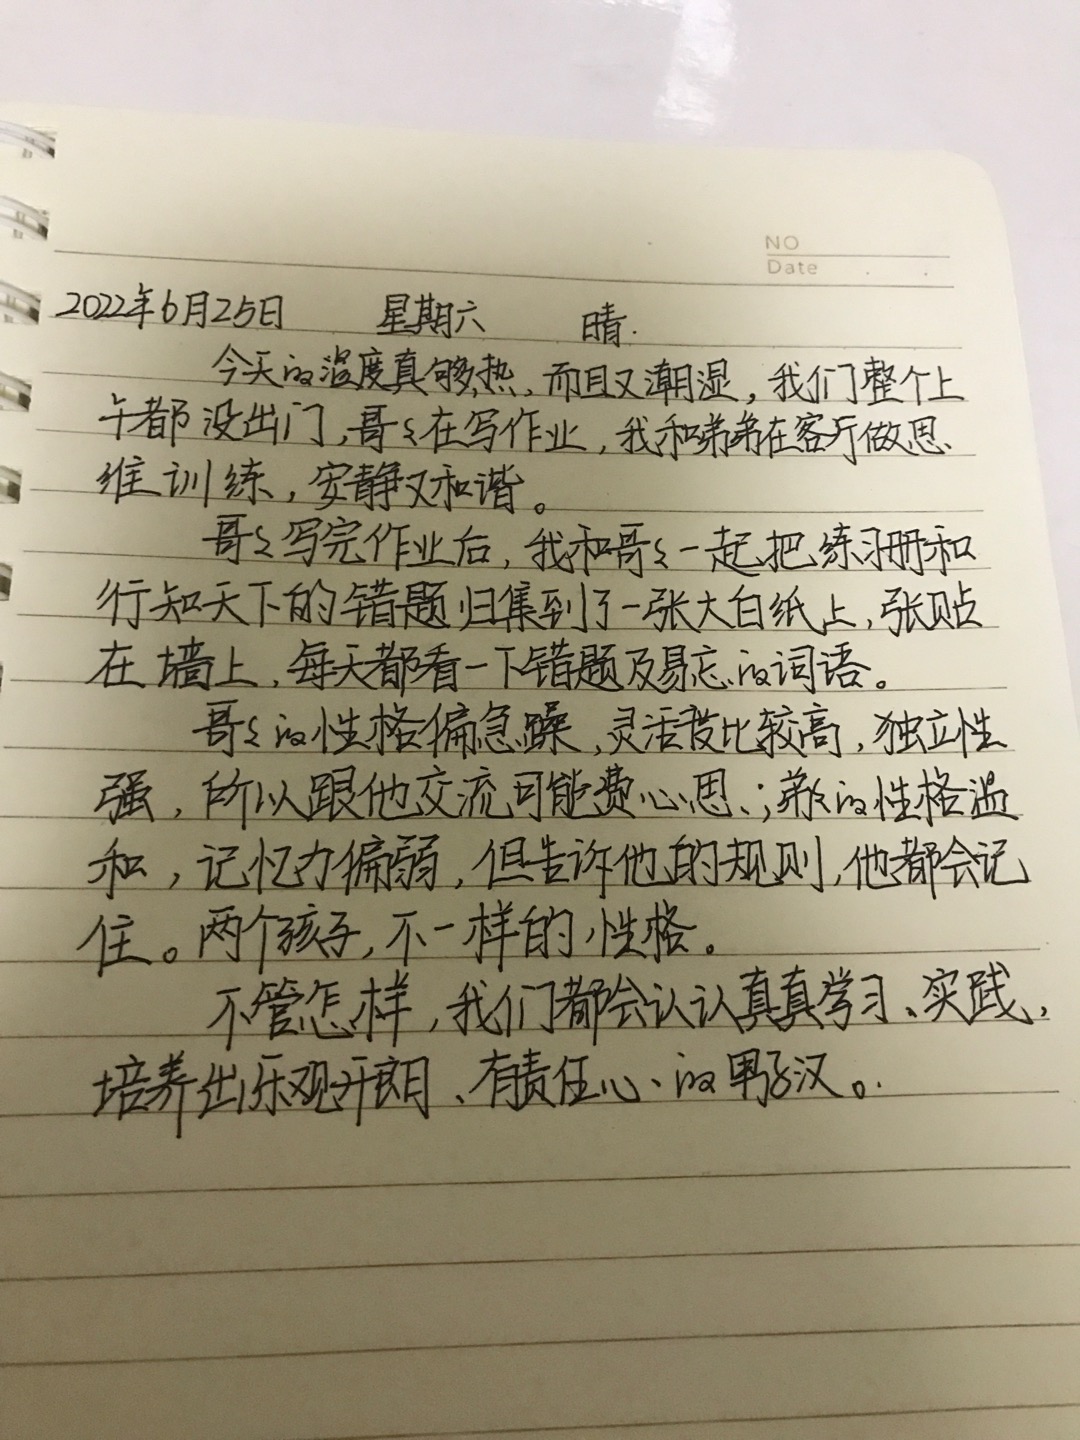 NO
Date
2022年6月25日 星期六 晴.
今天的温度真够热,而且又潮湿,我们整个上
午都没出门,哥哥在写作业,我和弟弟在客厅做思
维训练,安静又和谐。
哥哥写完作业后,我和哥哥一起把练习册和
行知天下的错题归集到了一张大白纸上,张贴
在墙上,每天都看一下错题及易忘的词语。
哥哥的性格偏急躁,灵活度比较高,独立性
强,所以跟他交流可能费心思;弟弟的性格温
和,记忆力偏弱,但告诉他的规则,他都会记
住。两个孩子,不一样的性格。
不管怎样,我们都会认认真真学习、实践,
培养出乐观开朗、有责任心、的男子汉。